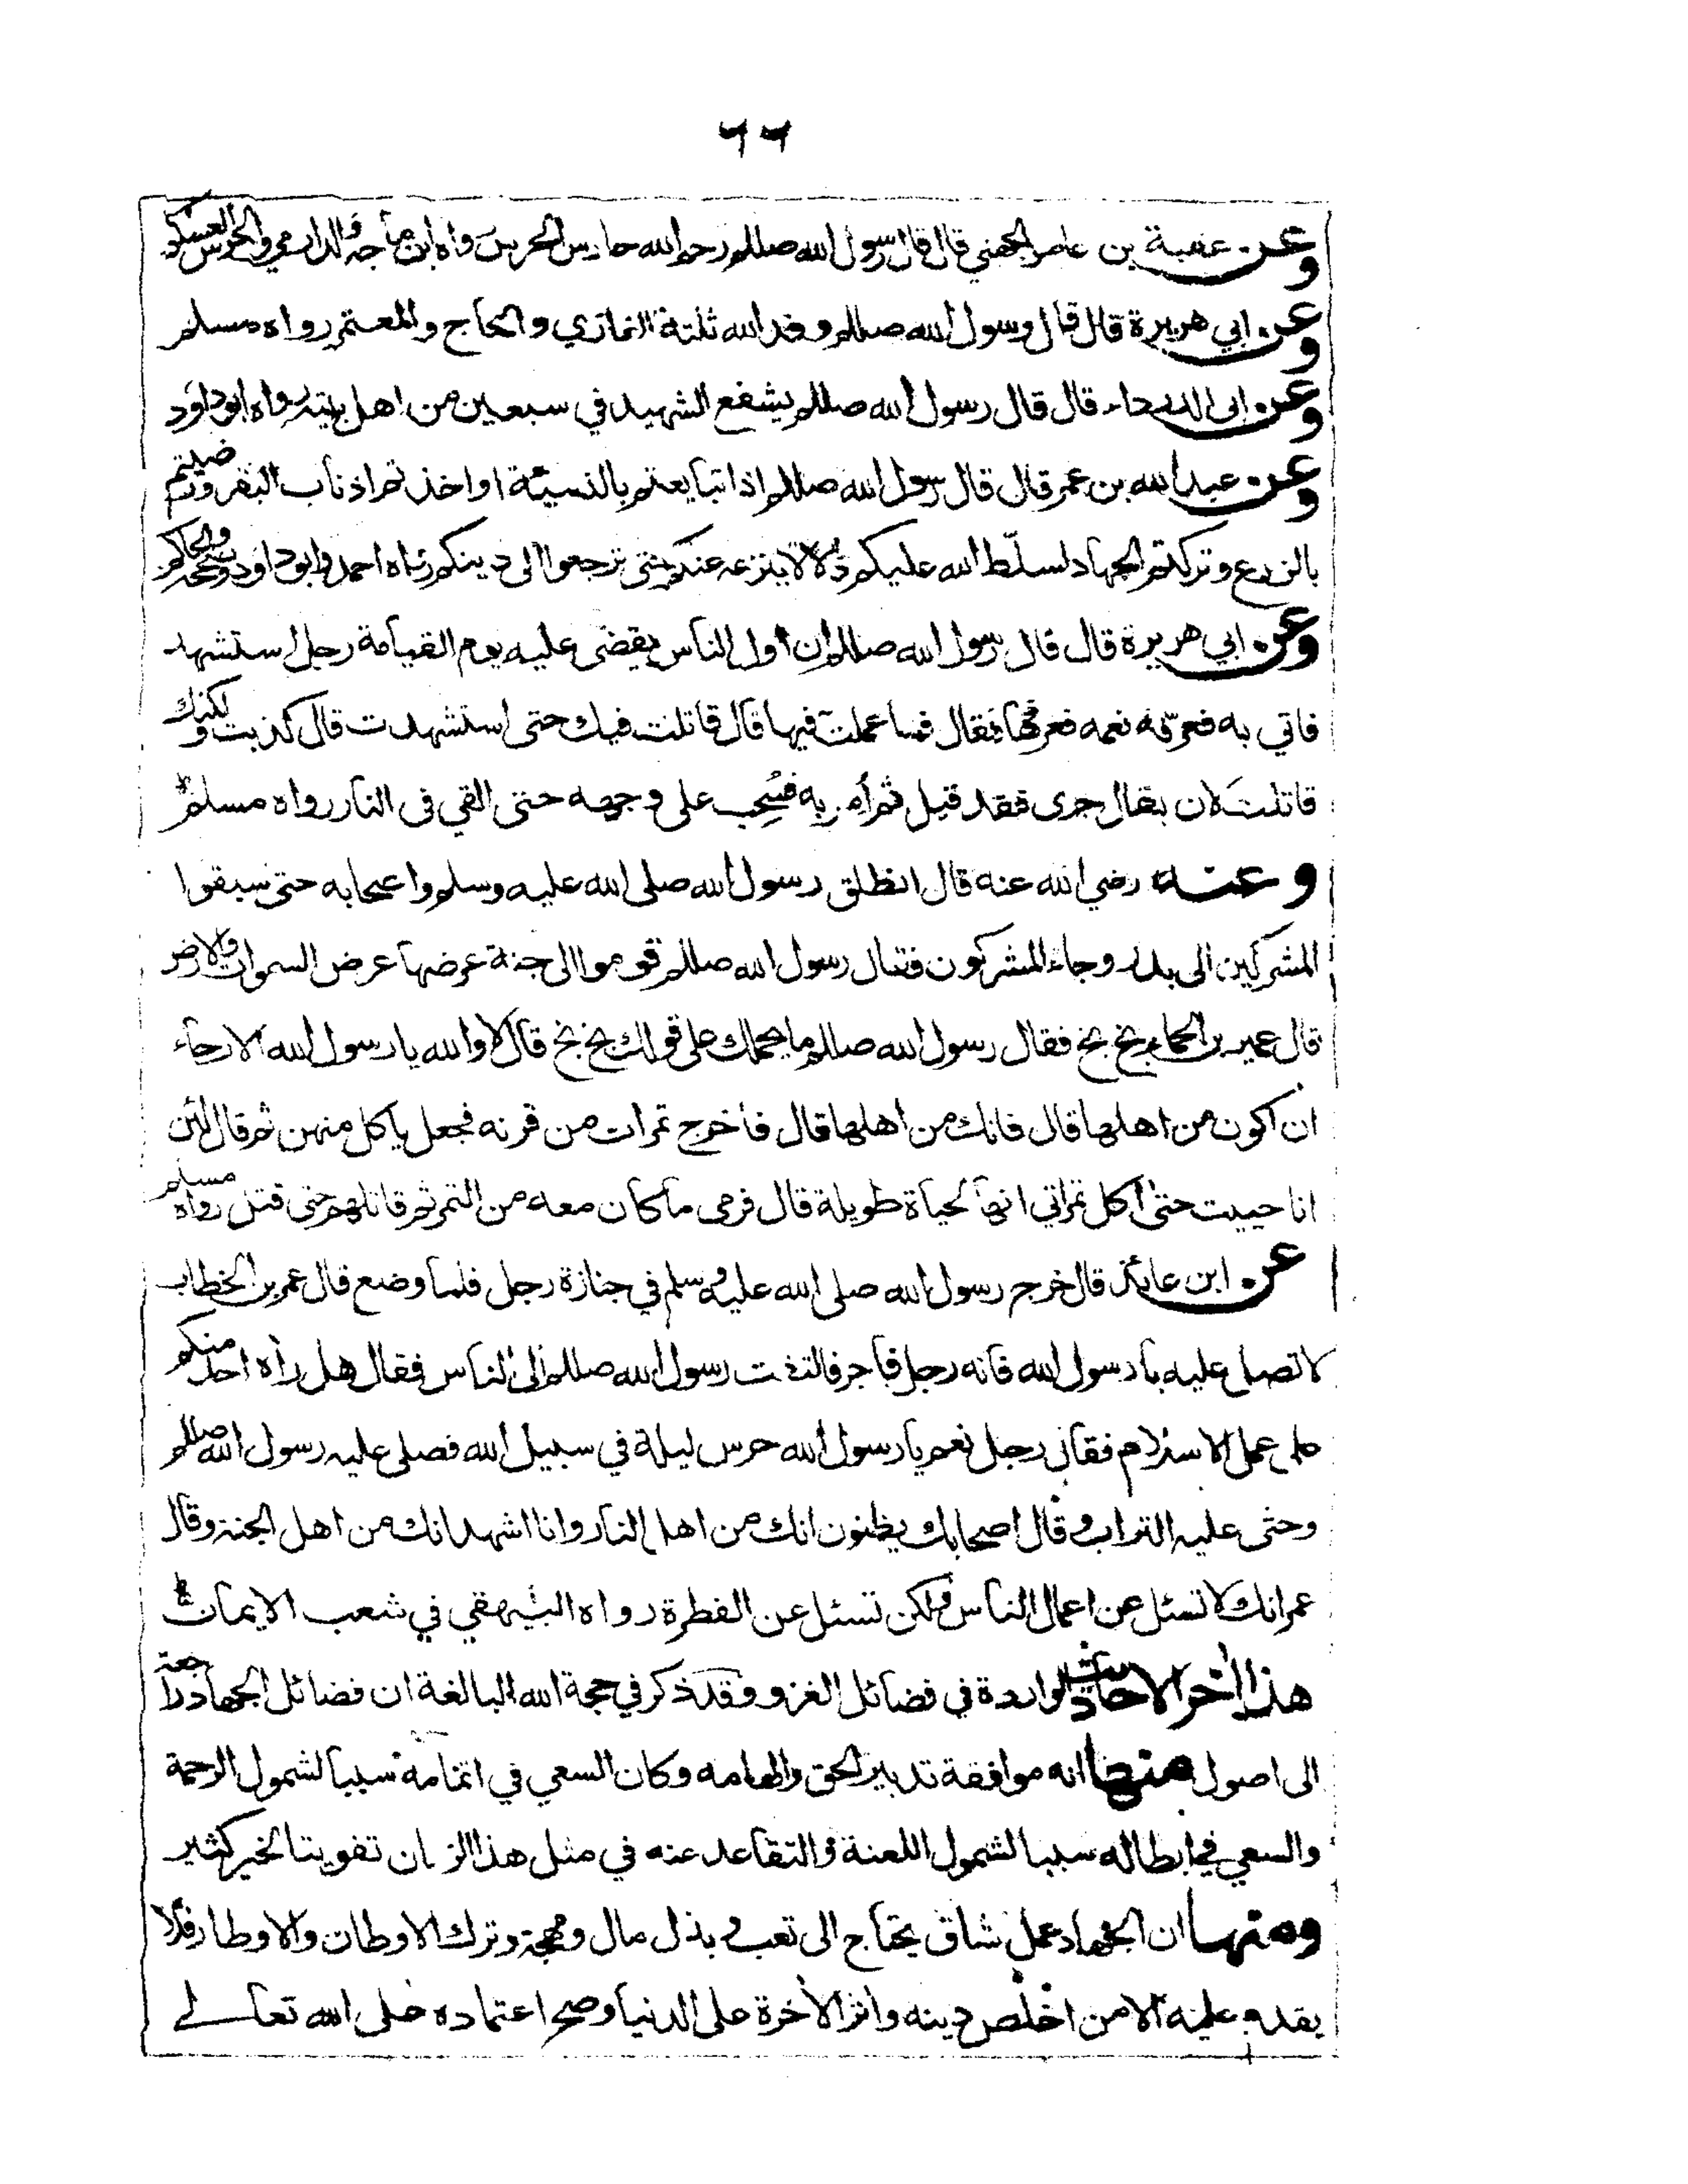 ٦٦
وعن عقبة بن عامر الجهني قال قال رسول الله صللم رحم الله حارس الحرس رواه ابن ماجه والدارمي والحرس العسكر
وعن ابي هريرة قال قال رسول الله صللم وفد الله ثلثة الغازي والحاج والمعتمر رواه مسلم
وعن ابى الدرداء قال قال رسول الله صللم يشفع الشهيد في سبعين من اهل بيته رواه ابو داود
وعن عبد الله بن عمر قال قال رسول الله صللم اذا تبايعتم بالنسيئة او اخذتم اذناب البقر ورضيتم
بالزرع وتركتم الجهاد لسلّط الله عليكم ذُلا لا ينزعه عنكم حتى ترجعوا الى دينكم رواه احمد وابو داود وصححه الحاكم
وعن ابي هريرة قال قال رسول الله صللم ان اول الناس يقضى عليه يوم القيامة رجل استشهد
فاتي به فعرّفه نعمه فعرفها فقال فما عملت فيها قال قاتلت فيك حتى استشهدت قال كذبت ولكنك
قاتلت لان يقال جرى فقد قيل ثم أُمر به فسُحِب على وجهه حتى القي فى النار رواه مسلم
وعنه رضي الله عنه قال انطلق رسول الله صلى الله عليه وسلم واصحابه حتى سبقوا
المشركين الى بدر وجاء المشركون فقال رسول الله صللم قوموا الى جنة عرضها عرض السموات والارض
قال عمير بن الحمام بخ بخ فقال رسول الله صللم ما يحملك على قولك بخ بخ قال لا والله يا رسول الله الا رجاء
ان اكون من اهلها قال فانك من اهلها قال فاخرج تمرات من قرنه فجعل ياكل منهن ثم قال لئن
انا حييت حتى آكل تمراتي انها لحياة طويلة قال فرمى ما كان معه من التمر ثم قاتلهم حتى قتل رواه مسلم
عن ابن عائذ قال خرج رسول الله صلى الله عليه وسلم في جنازة رجل فلما وضع قال عمر بن الخطاب
لا تصل عليه يا رسول الله فانه رجل فاجر فالتفت رسول الله صللم الى الناس فقال هل رأه احد منكم
على عمل الاسلام فقال رجل نعم يا رسول الله حرس ليلة في سبيل الله فصلى عليه رسول الله صللم
وحثى عليه التراب وقال اصحابك يظنون انك من اهل النار وانا اشهد انك من اهل الجنة وقال
عمر انك لا تسئل عن اعمال الناس ولكن تسئل عن الفطرة رواه البيهقي في شعب الايمان
هذا آخر الاحاديث الواردة في فضائل الغزو وقد ذكر في حجة الله البالغة ان فضائل الجهاد راجعة
الى اصول منها انه موافقة تدبير الحق والهامه وكان السعي في اتمامه سببا لشمول الرحمة
والسعي في ابطاله سببا لشمول اللعنة والتقاعد عنه في مثل هذا الزمان تفويتا لخير كثير
ومنها ان الجهاد عمل شاق يحتاج الى تعب وبذل مال ومهجة وترك الاوطان والاوطار فلا
يقدم عليه الا من اخلص دينه واٰثر الآخرة على الدنيا وصح اعتماده على الله تعالى